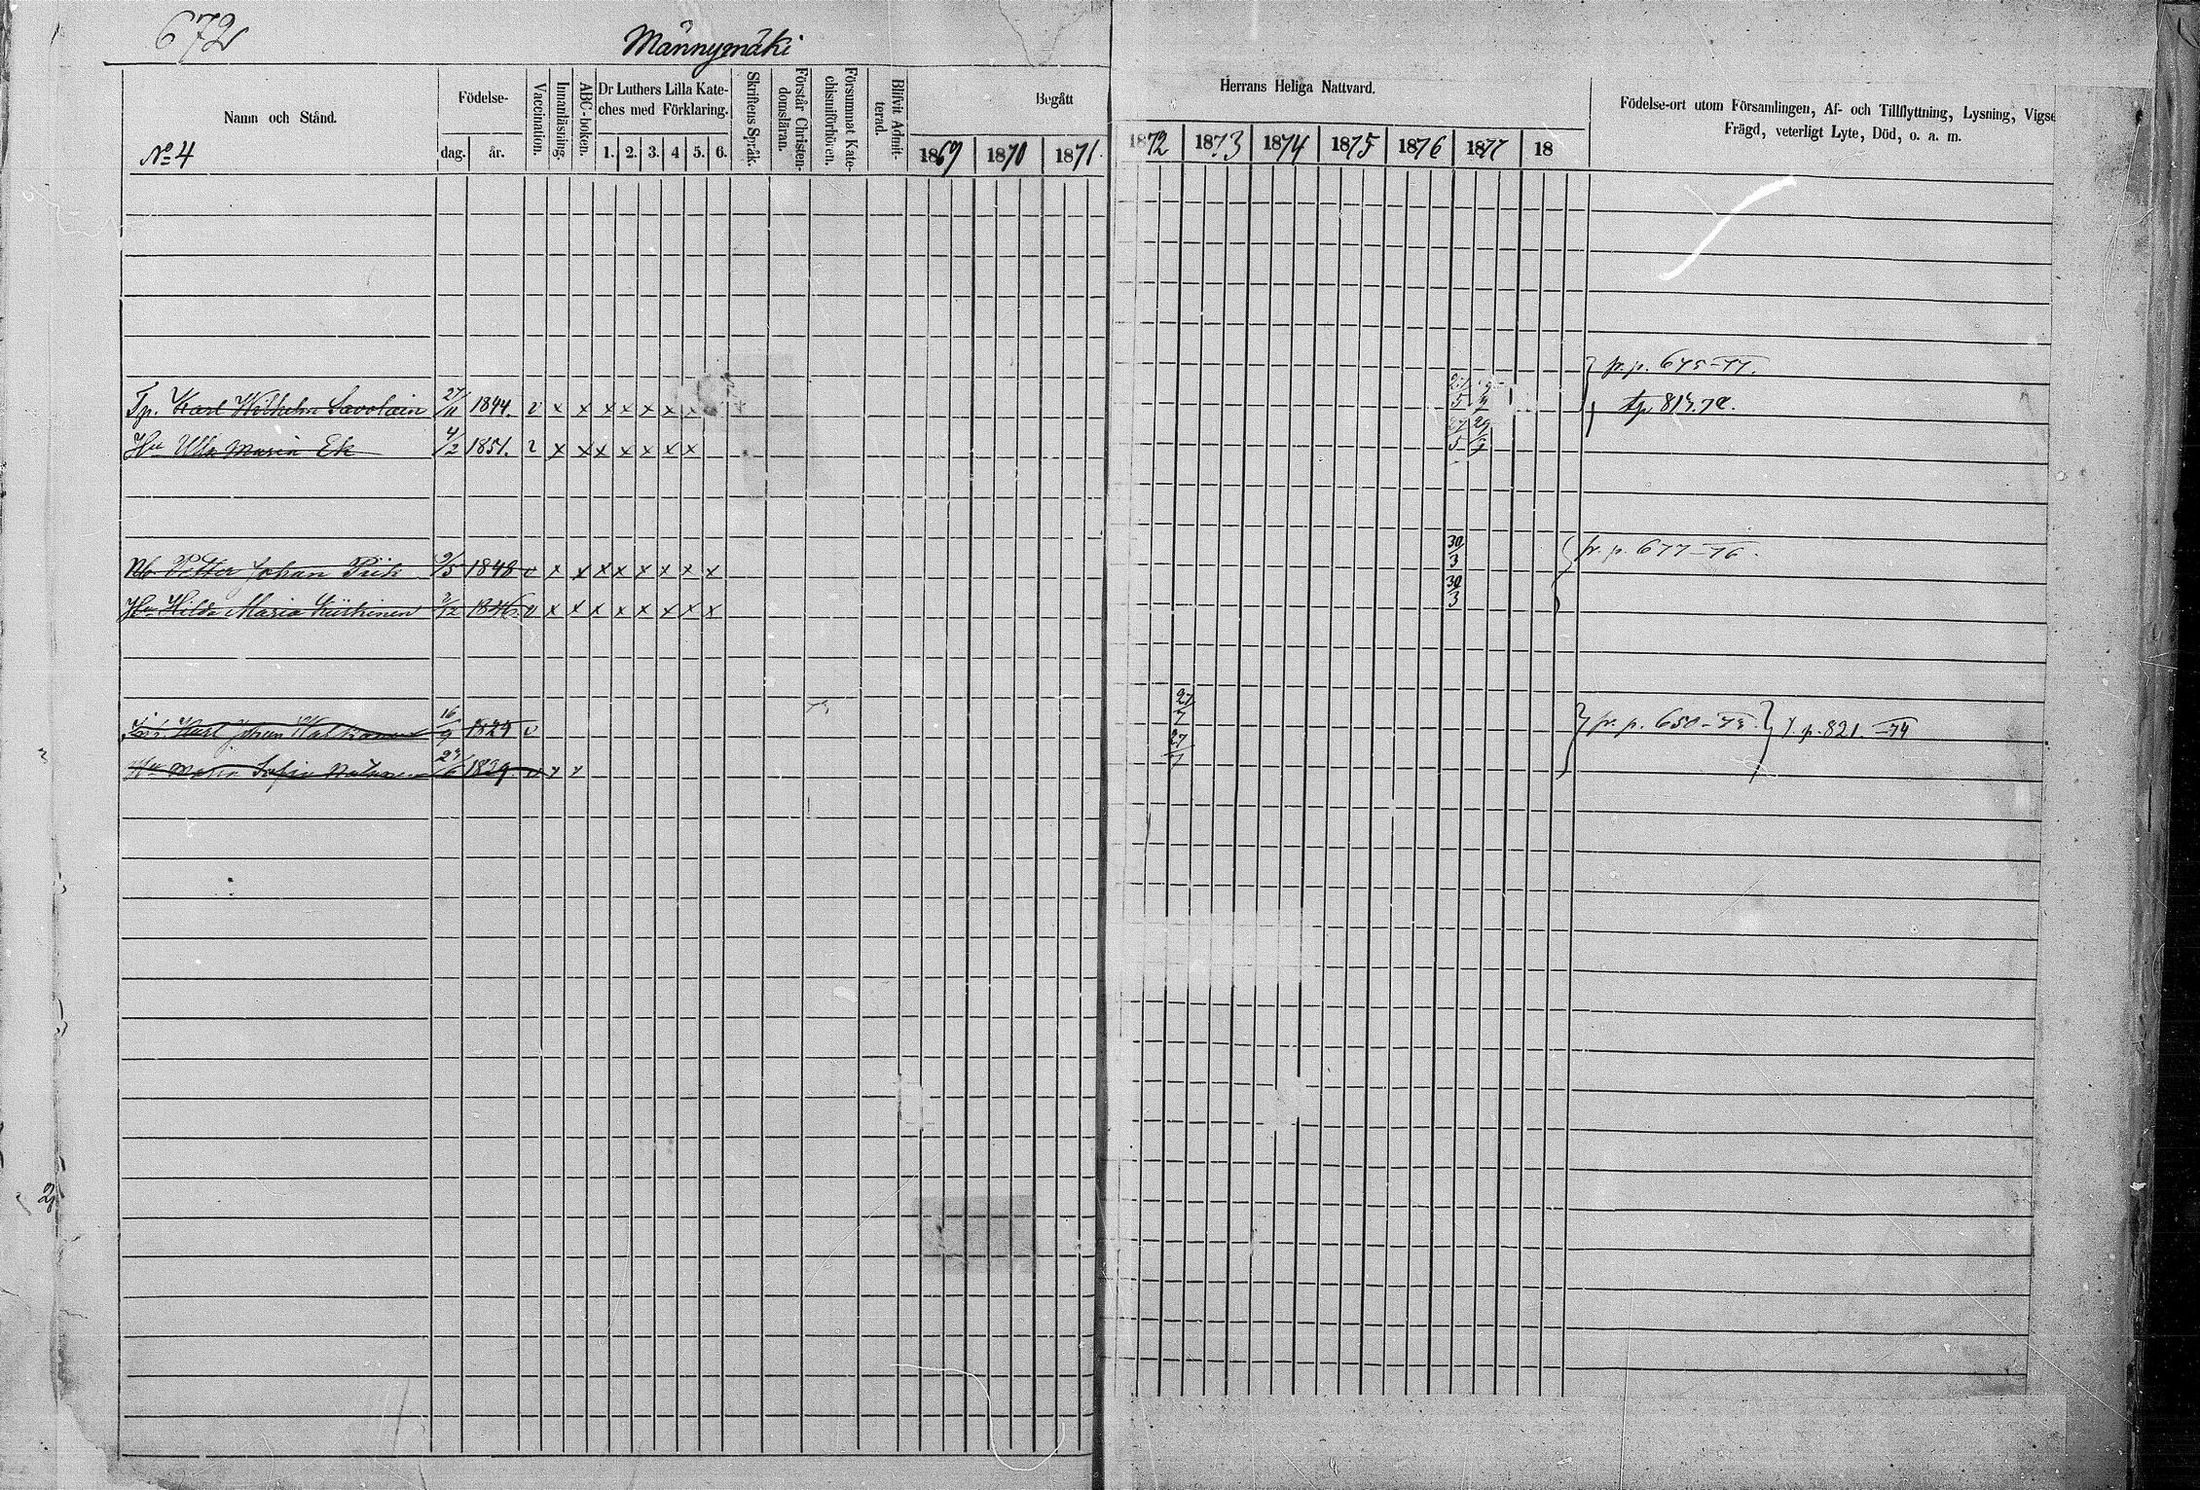 672
Männymäki
Namn och Stånd.
No 4
Födelse-
dag.
år.
Vaccination.
Innanläsning.
ABC-boken.
Dr Luthers Lilla Kate-
ches med Förklaring.
1. 2. 3. 4 5. 6.
Skriftens Språk.
Förstår Christen-
domsläran.
Försummat Kate-
chismiförhören.
Blifvit Admit-
terad.
Begått
1869 1870 1871
Herrans Heliga Nattvard.
1872 1873 1874 1875 1876 1877 18
Födelse-ort utom Församlingen, Af- och Tillflyttning, Lysning, Vigsel
Frägd, veterligt Lyte, Död, o. a. m.
fr. p. 675-77.
Tp. Karl Wilhelm Savolain 27/11 1844. v x x x x x x x
p. 817.78.
Hu Ulla Maria Ek 4/2 1851. v x x x x x x x 27/5 29/9
fr. p. 677-76.
Petter Johan Piik 9/5 1848 v x x x x x x x x 30/3
Hu Hilda Maria 2/12 v x x x x x x x x 30/3
Karl Johan 16/9 1824 v 27/7 fr. p. 650-73. p. 821-74
Hu Maria Sofia 1829. v x x 27/7